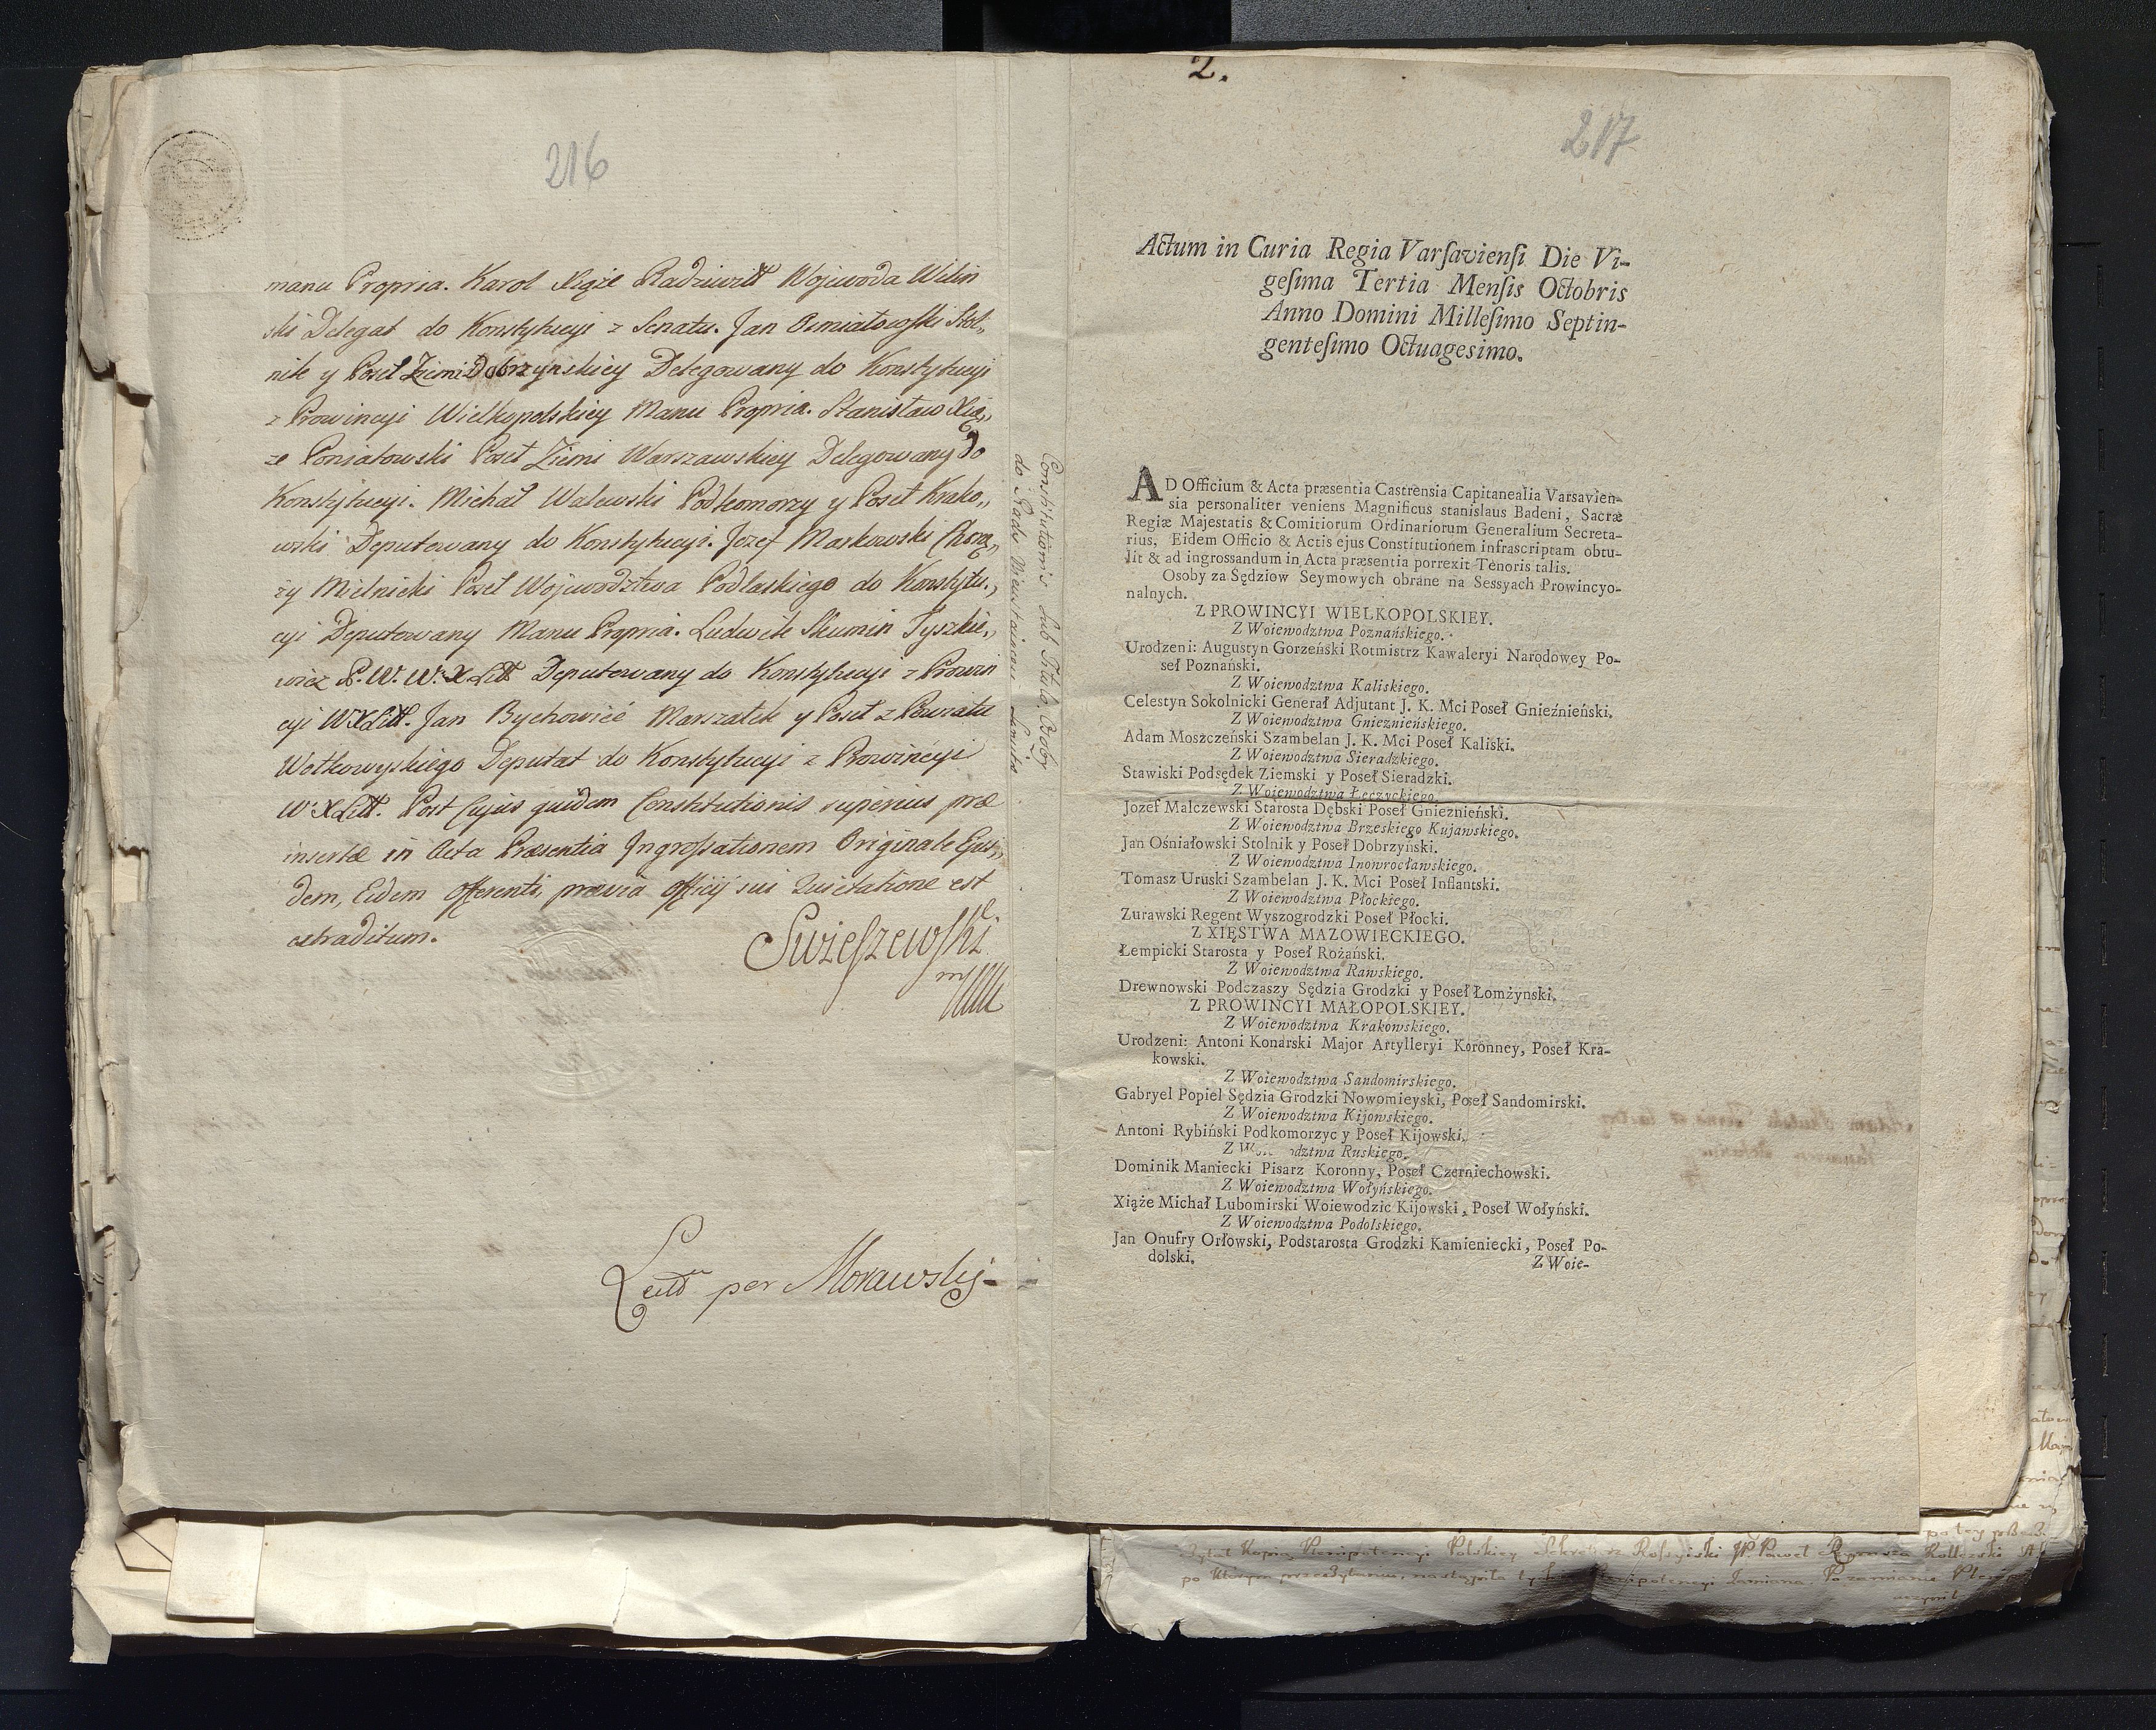 216
manu Propria. Karol Xiąże Radziwiłł Wojewoda Wileń
ski Delegat do Konstytucyi z Senatu. Jan Osmiałowski Stol„
nik y Poseł Ziemi Dobrzyńskiey Delegowany do Konstytucyi
z Prowincyi Wielkopolskiey Manu Propria. Stanisław Xią„
że Poniatowski Poseł Ziemi Warszawskiey Delegowany do
Konstytucyi. Michał Walewski Podkomorzy y Poseł Krako„
wski Deputowany do Konstytucyi. Jozef Markowski Chorą„
ży Mielnicki Poseł Wojewodztwa Podlaskiego do Konstytu„
cyi Deputowany Manu Propria. Ludwik Skumin Tyszkie„
wicz P. W. W. X Litt Deputowany do Konstytucyi z Prowin
cyi WXLitt. Jan Bychowiec Marszałek y Poseł z Powiatu
Wołkowyskiego Deputat do Konstytucyi z Prowincyi
W X Litt. Post Cujus quidem Constitutionis superius præ
insertæ in Acta Præsentia Ingrossationem Originale Ejus„
dem, Eidem Offerenti, prævia Officij sui Quietatione est
extraditum.
Swieszewski
mp
Lectum per Morawski
Constitutionis sub Titulo. Osoby
do Rady Nieustaiącey
2.
217
Actum in Curia Regia Varſavienſi Die Vi-
geſima Tertia Menſis Octobris
Anno Domini Milleſimo Septin-
genteſimo Octuagesimo.
AD Officium & Acta præsentia Castrensia Capitanealia Varsavien-
sia personaliter veniens Magnificus stanislaus Badeni, Sacræ
Regiæ Majestatis & Comitiorum Ordinariorum Generalium Secreta-
rius, Eidem Officio & Actis ejus Constitutionem infrascriptam obtu-
lit & ad ingrossandum in Acta præsentia porrexit Tenoris talis.
Osoby za Sędziow Seymowych obrane na Sessyach Prowincyo-
nalnych.
Z PROWINCYI WIELKOPOLSKIEY.
Z Woiewodztwa Poznańskiego.
Urodzeni: Augustyn Gorzeński Rotmistrz Kawaleryi Narodowey Po-
seł Poznański.
Z Woiewodztwa Kaliskiego.
Celestyn Sokolnicki Generał Adjutant J. K. Mci Poseł Gnieźnieński.
Z Woiewodztwa Gnieznieńskiego.
Adam Moszczeński Szambelan J. K. Mci Poseł Kaliski.
Z Woiewodztwa Sieradzkiego.
Stawiski Podsędek Ziemski y Poseł Sieradzki.
Z Woiewodztwa Łęczyckiego.
Jozef Malczewski Starosta Dębski Poseł Gnieznieński.
Z Woiewodztwa Brzeskiego Kujawskiego.
Jan Ośniałowski Stolnik y Poseł Dobrzyński.
Z Woiewodztwa Inowrocławskiego.
Tomasz Uruski Szambelan J. K. Mci Poseł Inflantski.
Z Woiewodztwa Płockiego.
Zurawski Regent Wyszogrodzki Poseł Płocki.
Z XIĘSTWA MAZOWIECKIEGO.
Łempicki Starosta y Poseł Rożański.
Z Woiewodztwa Rawskiego.
Drewnowski Podczaszy Sędzia Grodzki y Poseł Łomżynski.
Z PROWINCYI MAŁOPOLSKIEY.
Z Woiewodztwa Krakowskiego.
Urodzeni: Antoni Konarski Major Artylleryi Koronney, Poseł Kra-
kowski.
Z Woiewodztwa Sandomirskiego.
Gabryel Popiel Sędzia Grodzki Nowomieyski, Poseł Sandomirski.
Z Woiewodztwa Kijowskiego.
Antoni Rybiński Podkomorzyc y Poseł Kijowski.
Z Wo dztwa Ruskiego.
Dominik Maniecki Pisarz Koronny, Poseł Czerniechowski.
Z Woiewodztwa Wołyńskiego.
Xiąże Michał Lubomirski Woiewodzic Kijowski, Poseł Wołyński.
Z Woiewodztwa Podolskiego.
Jan Onufry Orłowski, Podstarosta Grodzki Kamieniecki, Poseł Po-
dolski.
Z Woie-